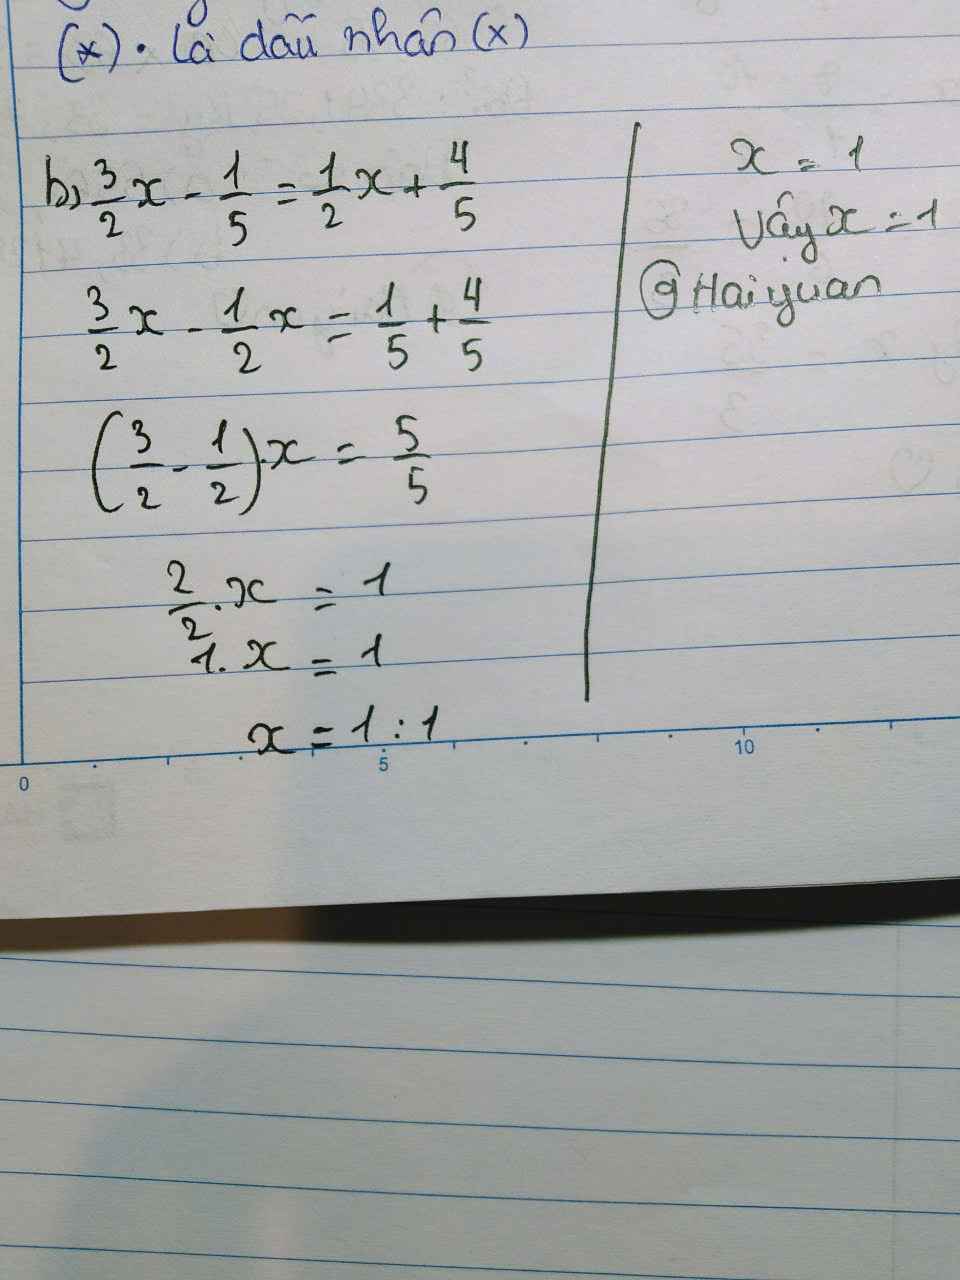 (x) . là dấu nhân (x)
b, 3/2 x - 1/5 = 1/2 x + 4/5
3/2 x - 1/2 x = 1/5 + 4/5
(3/2 - 1/2).x = 5/5
2/2 . x = 1
1. x = 1
x = 1 : 1
x = 1
Vậy x = 1
@Haiyuan
0 5 10